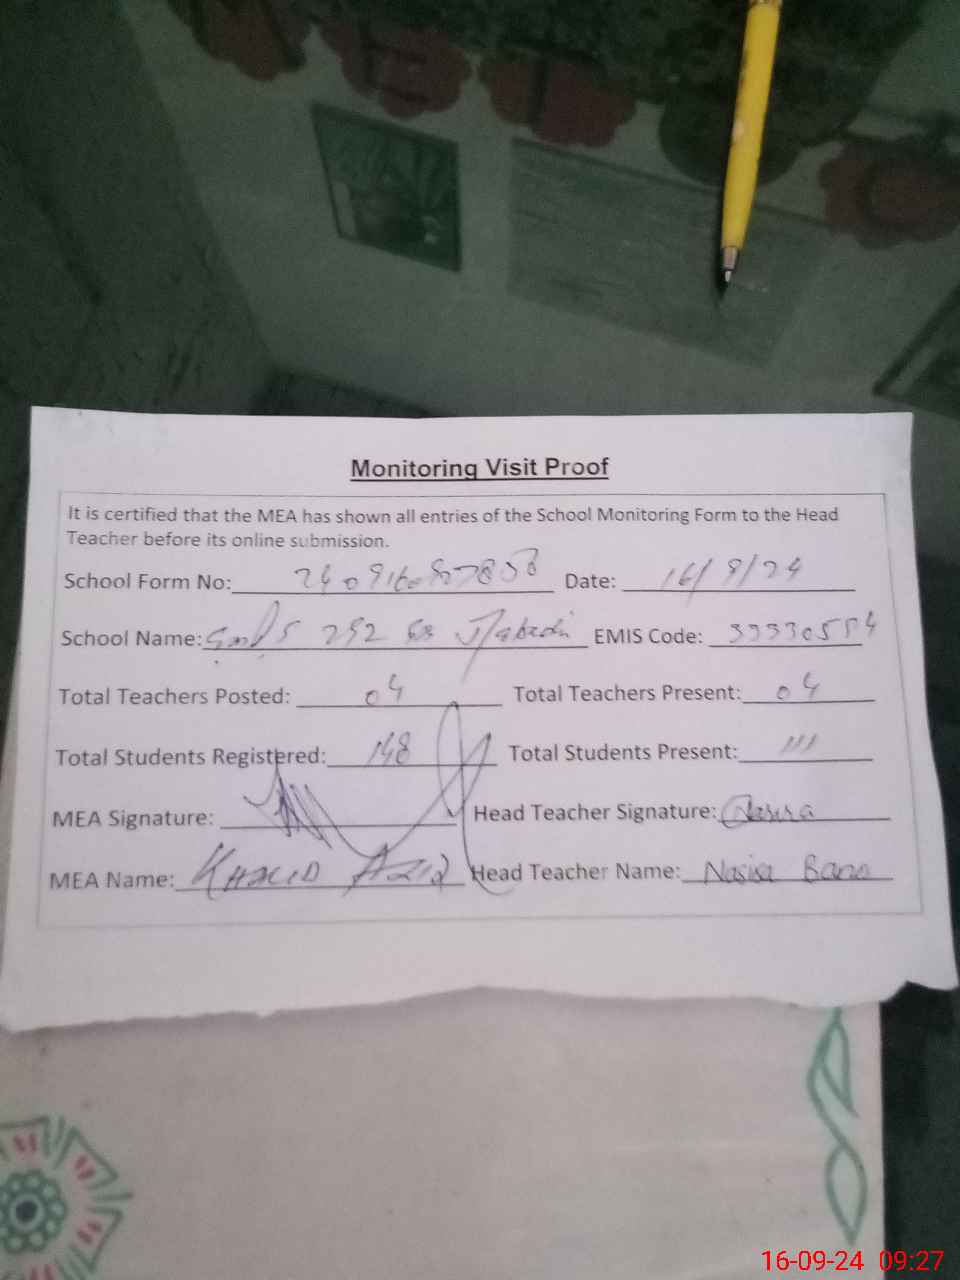 Monitoring Visit Proof
It is certified that the MEA has shown all entries of the School Monitoring Form to the Head
Teacher before its online submission.
School Form No: Date: 16/9/24
School Name: 292 EMIS Code:
Total Teachers Posted: 04 Total Teachers Present: 04
Total Students Registered: 148 Total Students Present: 111
MEA Signature: Head Teacher Signature: Nasira
MEA Name: KHALID AZIZ Head Teacher Name: Nasira Bano
16-09-24 09:27